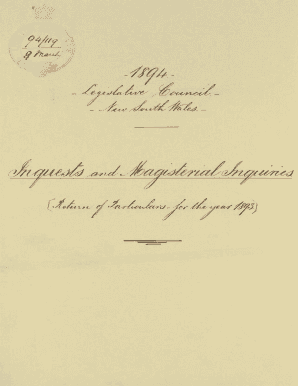 94/119
8 March
- 1894 -
- Legislative Council -
- New South Wales -
Inquests and Magisterial Inquiries
(Return of Particulars for the year 1893)